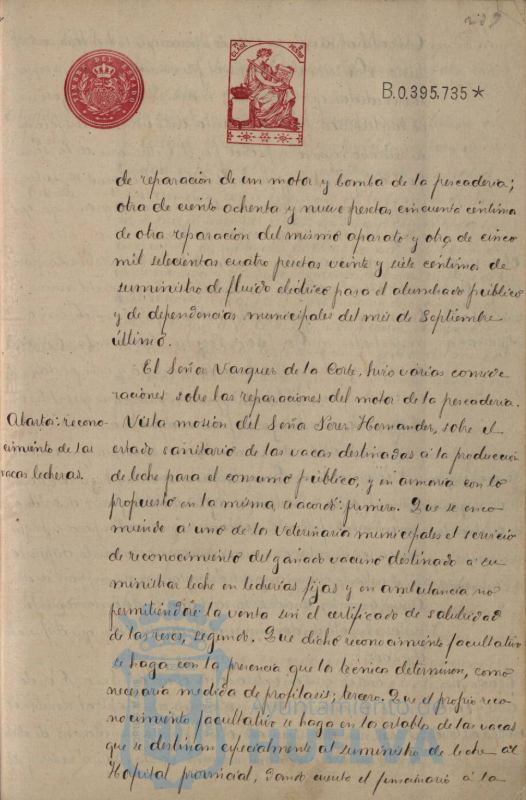 B.0.395,735 *
de reparación de un motor y bomba de la pescadería;
otra de ciento ochenta y nueve pesetas cincuenta céntimos
de otra reparación del mismo aparato y otra de cinco
mil setecientas cuatro pesetas veinte y siete céntimos de
suministro de fluido eléctrico para el alumbrado público
y de dependencias municipales del mes de Septiembre
último.
El Señor Vazquez de la Corte, hizo várias conside
raciones sobre las reparaciones del motor de la pescadería.
Abastos: recono-
cimiento de las
vacas lecheras.
Vista moción del Señor Pérez Hernandez, sobre el
estado sanitario de las vacas destinadas á la producción
de leche para el consumo público, y en armonía con lo
propuesto en la misma, se acordó: primero. Que se enco
miende á uno de los Veterinarios municipales el servicio
de reconocimiento del ganado vacuno destinado á su
ministrar leche en lecherías fijas y en ambulancia no
permitiéndose la venta sin el certificado de salubridad
de las reses, segundo. Que dicho reconocimiento facultativo
se haga con la frecuencia que los técnicos determinen, como
necesaria medida de profilaxis; tercero. Que el propio reco
nocimiento facultativo se haga en los establos de las vacas
que se destinan especialmente al suministro de leche al
Hospital provincial, dando cuenta el funcionario á la
Ayuntamiento de
HUELVA